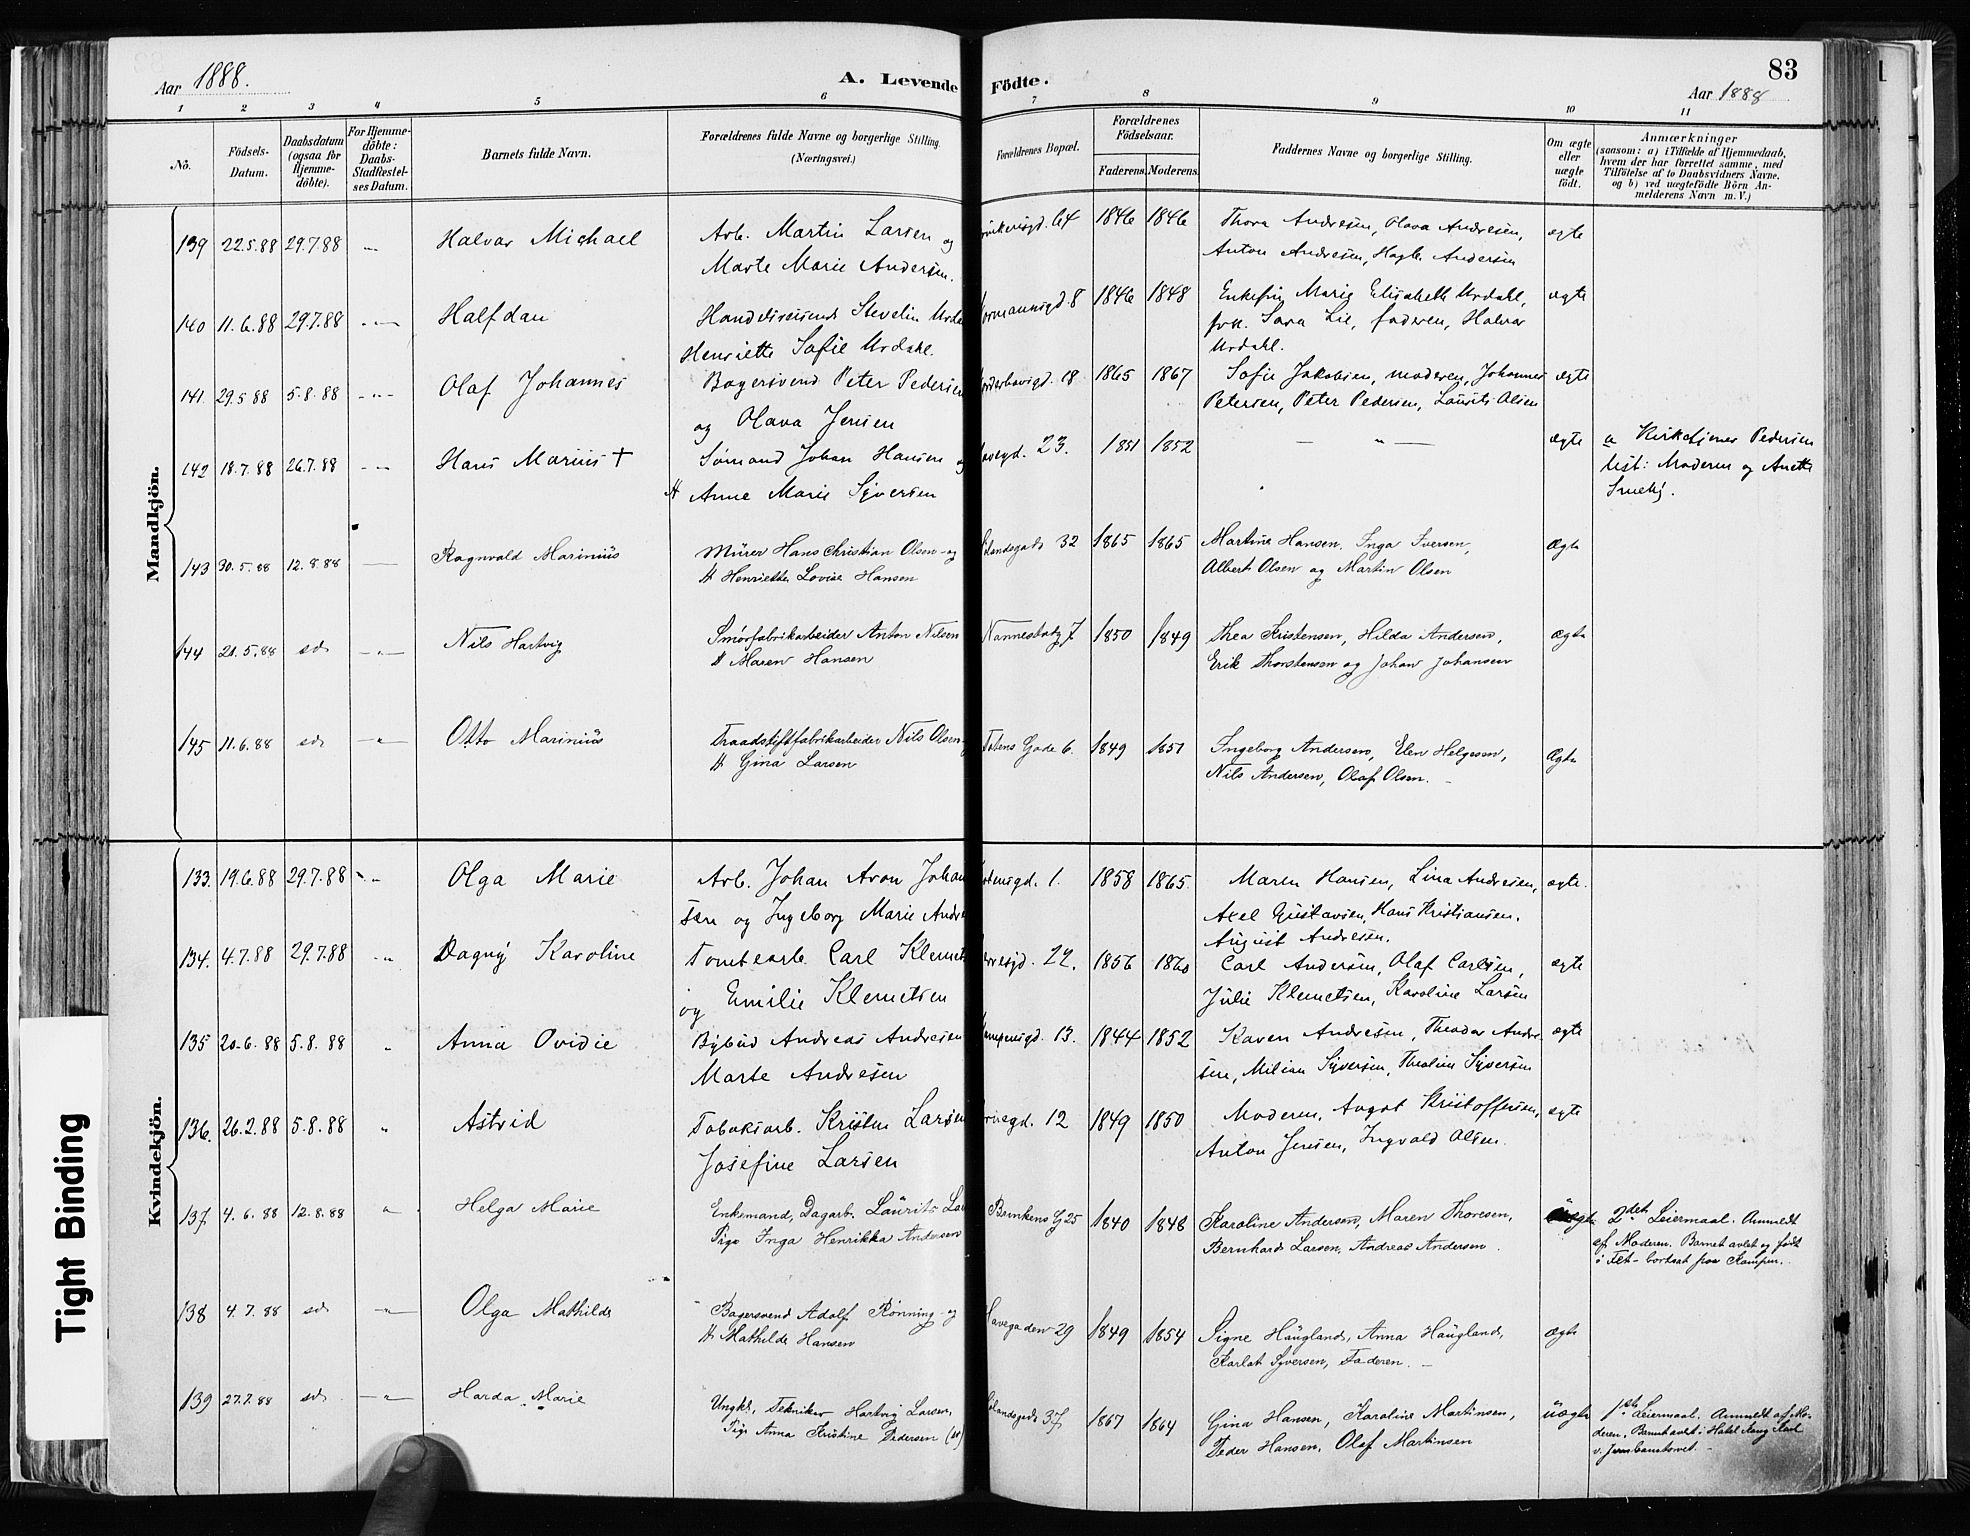 Aar 1888.
A. Levende Födte.
83
Aar 1888
1 2 3 4 5 6 7 8 9 10 11
No.
Födsels-Datum.
Daabsdatum (ogsaa for Hjemme-döbte).
For Hjemme-döbte: Daabs-Stadfæstel-ses Datum.
Barnets fulde Navn.
Forældrenes fulde Navne og borgerlige Stilling. (Næringsvei.)
Forældrenes Bopæl.
Forældrenes Födselsaar.
Faderens. Moderens.
Faddernes Navne og borgerlige Stilling.
Om ægte eller uægte födt.
Anmærkninger
(saasom: a) i Tilfælde af Hjemmedaab,
hvem der har forrettet samme, med
Tilföielse af to Daabsvidners Navne,
og b) ved uægtefödte Börn An-
melderens Navn m.V.)
Mandkjön.
139 22.5.88 29.7.88 Halvar Michael Arb. Martin Larsen og 64 1846 1846 Thora Andresen, Olava Andresen, ægte
Marte Marie Andersen. Anton Andresen, Hagb. Andersen
140 11.6.88 29.7.88 Halfdan Handelsreisende Stevelin 8 1846 1848 Enkefru Marie Elisabeth Urdahl, ægte
Henriette Sofie Urdahl. frk. Sara Lie, faderen, Halvar
Urdahl.
141. 29.5.88 5.8.88 Olaf Johannes Bagersvend Peter Pedersen 18 1865 1867 Sofie Jakobsen, moderen, Johannes ægte
og Olava Jensen Petersen, Peter Pedersen, Laurits Olsen
142 18.7.88 26.7.88 Hans Marius + Sömand Johan Hansen og 23. 1851 1852 — " — ægte a Kirketjener Pedersen
H Anne Marie Syversen test: Moderen og Anette
143 30.5.88 12.8.88 Ragnvald Marinius Mürer Hans Christian Olsen og 32 1865 1865 Martine Hansen, Inga Iversen, Ægte
H Henriette Lovise Hansen Albert Olsen og Martin Olsen
144 21.5.88 sd. Nils Hartvig Smörfabrikarbeider Anton Nilsen 7 1850 1849 Thea Kristensen, Hilda Andersen, Ægte
H Maren Hansen Erik Thorstensen og Johan Johansen
145 11.6.88 sd. Otto Marinius Traadstiftfabrikarbeider Nils Olsen Gade 6. 1849 1851 Ingeborg Andersen, Elen Helgesen, Ægte
H Gina Larsen Nils Andersen, Olaf Olsen. —
Kvindekjön.
133. 19.6.88 29.7.88 Olga Marie Arb. Johan Aron Johan 1. 1858 1865. Maren Hansen, Lina Andresen, ægte.
sen og Ingeborg Marie Andre Axel Gustavsen, Hans Kristiansen.
August Andresen.
134. 4.7.88 29.7.88 Dagny Karoline Tomtearb. Carl Klemet 22. 1856 1860 Carl Andersen, Olaf Carlsen, ægte
og Emilie Klemetsen Julie Klemetsen, Karoline Larsen
135 20.6.88 5.8.88 Anna Ovidie Bybud Andreas Andresen 13. 1844 1852 Karen Andresen, Theodor Andre ægte
Marte Andresen sen, Milian Syversen, Theoline Syversen
136. 26.2.88 5.8.88 Astrid Tobaksarb. Kristen Larsen 12 1849 1850 Moderen, August Kristoffersen, ægte
Josefine Larsen Anton Jensen, Ingvald Olsen.
137. 4.6.88 12.8.88 Helga Marie Enkemand, Dagarb. Laurits La 25 1840 1848 Karoline Andersen, Maren Thoresen, uægte 2det Leiermaal. Anmeldt
Pige Inga Henrikka Andersen Bernhard Larsen, Andreas Andersen. af Moderen. Barnet avlet og født
i Fet – bortsat paa Kampen.
138 4.7.88 sd. Olga Mathilde Bagersvend Adolf Rönning og Havegaden 29 1849 1854 Signe Haugland, Anna Haugland, Ægte
H Mathilde Hansen Karlot Syversen, Faderen. —
139 27.7.88 sd. Harda Marie Ungkl. Tekniker Hartvig Larsen, 37. 1867 1864 Gina Hansen, Karoline Martinsen, uægte 1ste Leiermaal. Anmeldt af Mo-
Pige Anna Kristine Pedersen Peder Hansen, Olaf Martinsen deren, Barnet avlet i Hotel Kong Karl
Tight Binding